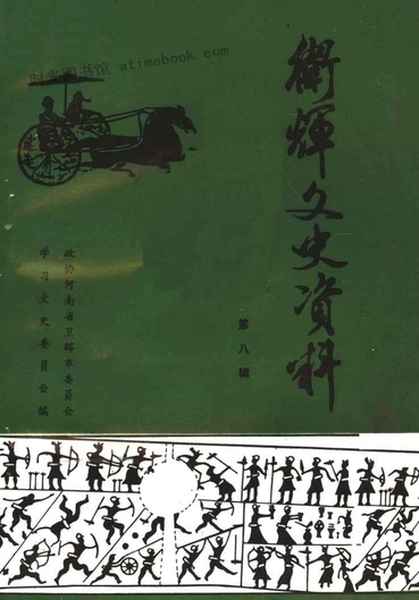 时光图书馆 atimebook.com
衛輝文史資料
第八辑
政协河南省卫辉市委员会
学习文史委员会编